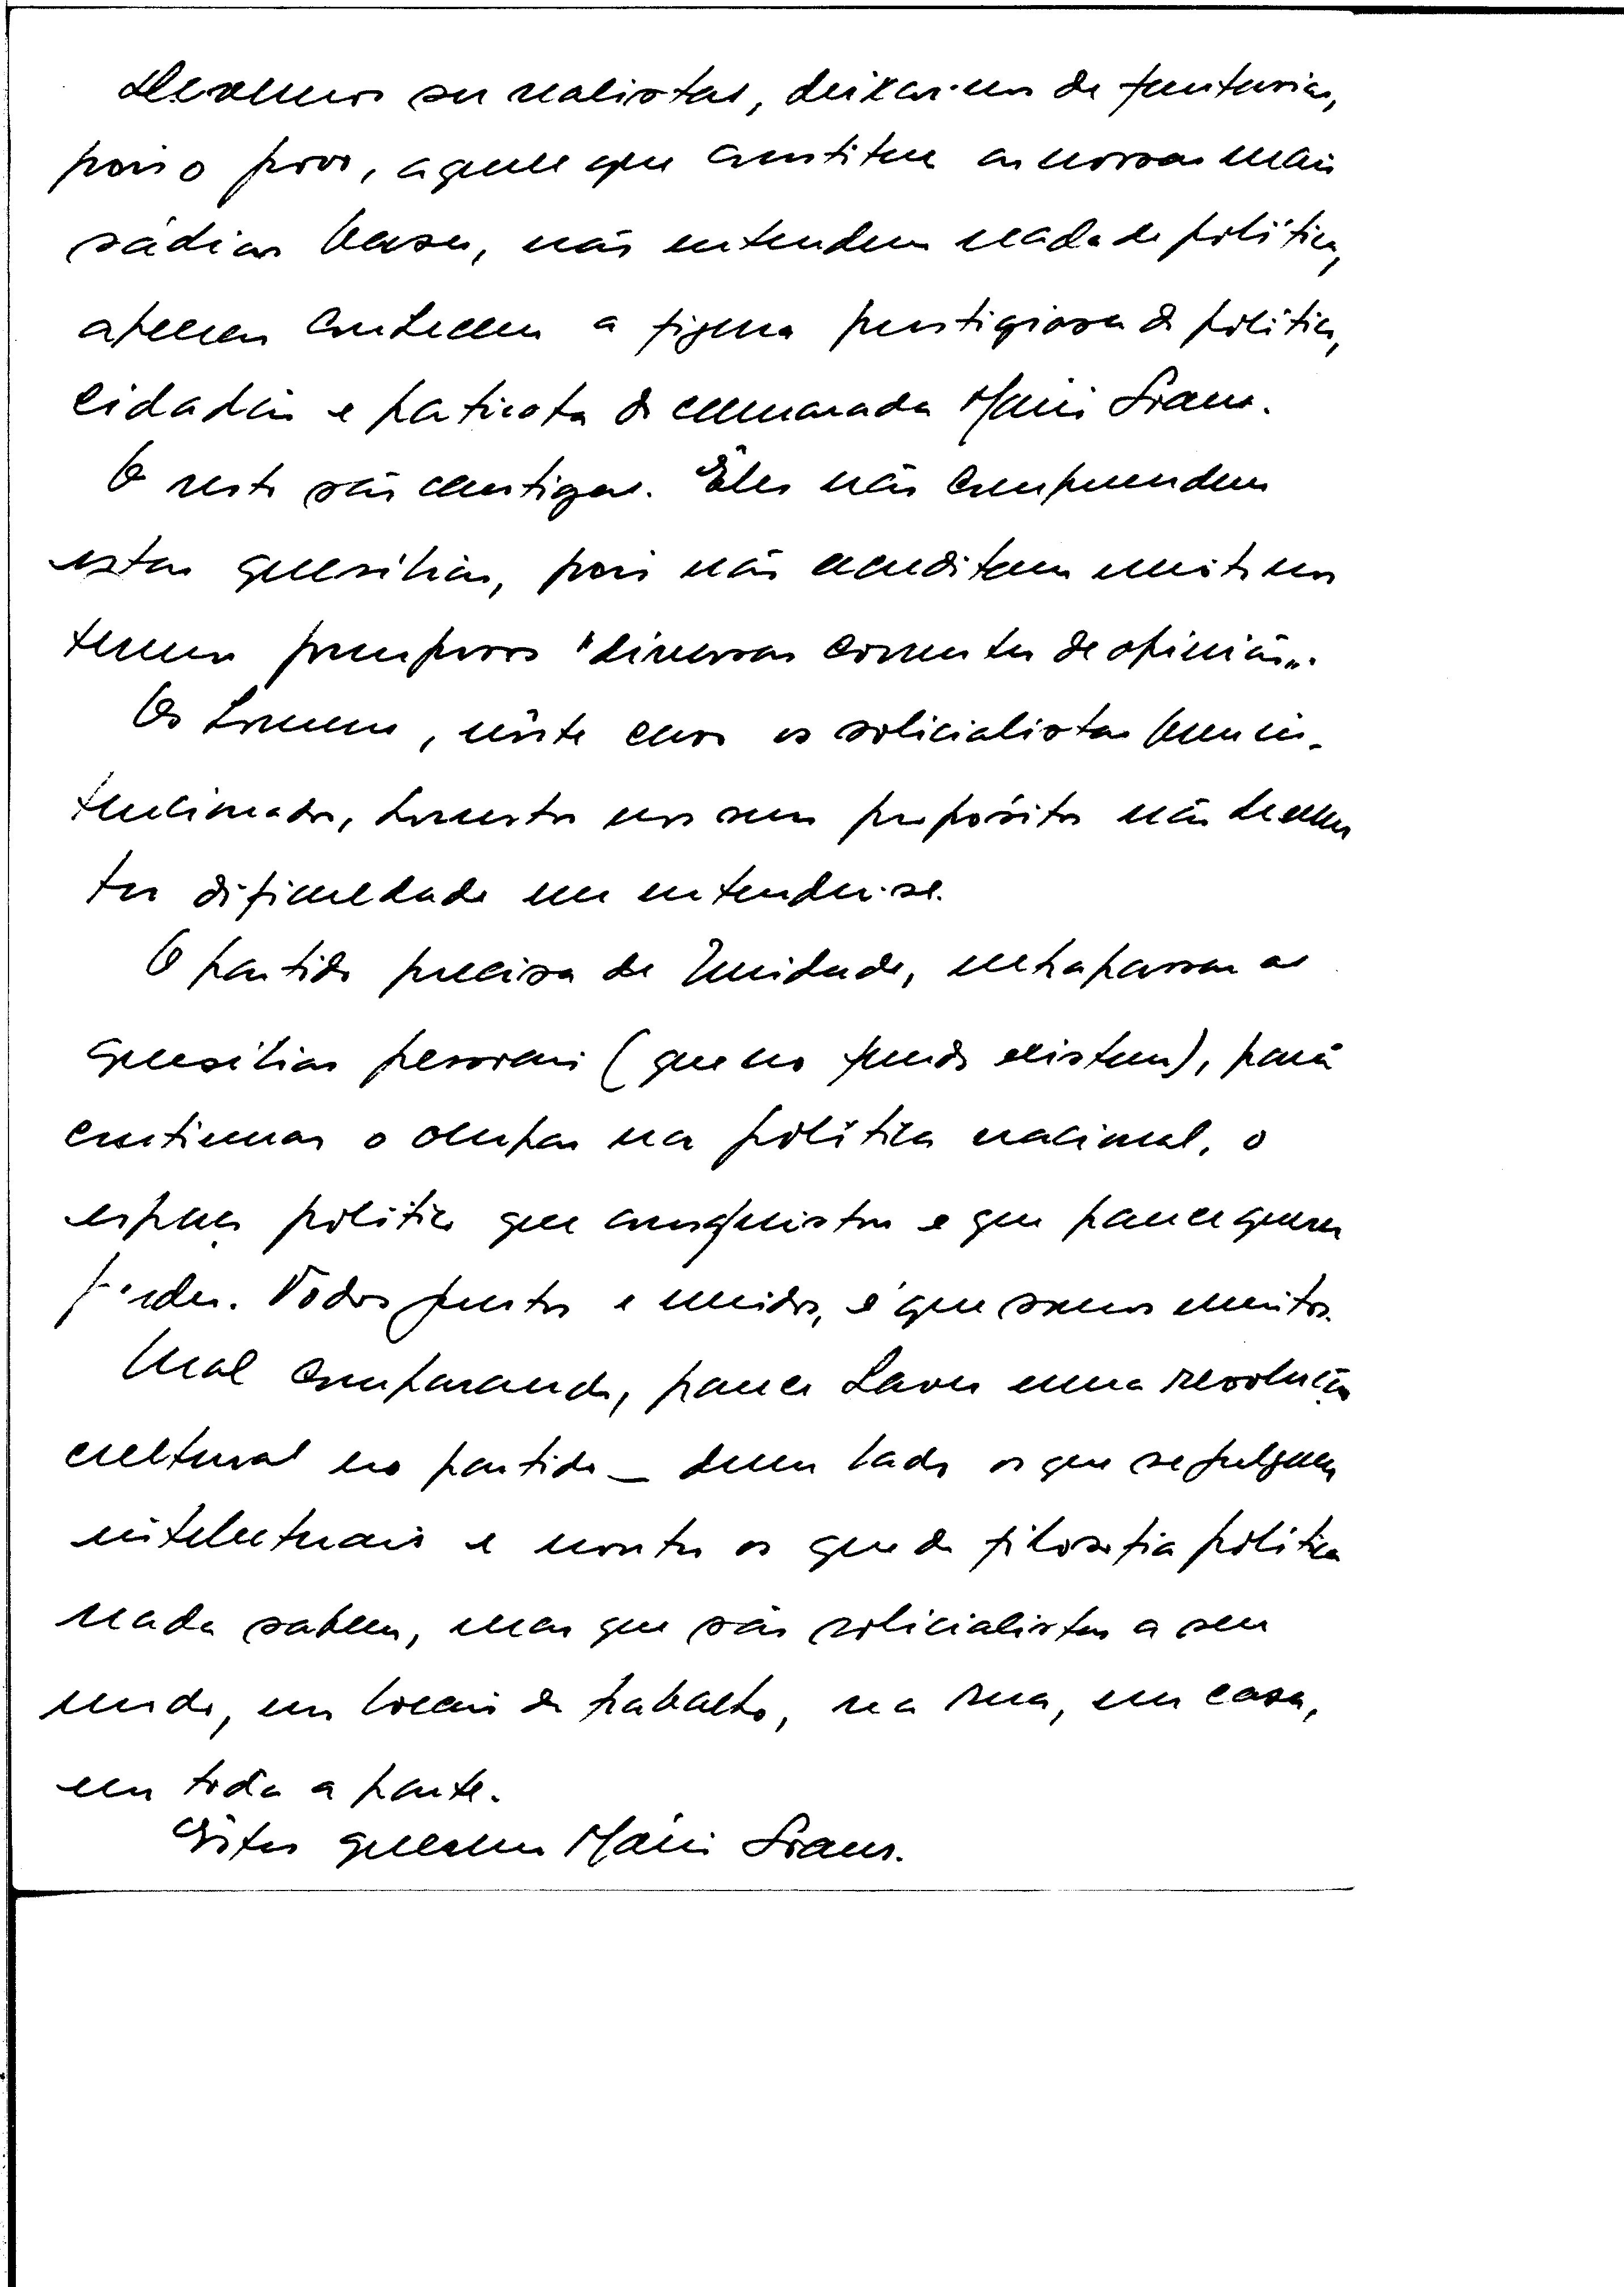 Devemos ser realistas, deixar-nos de fantasias,
pois o povo, aquele que constitue as nossas mais
sádias bases, não entendem nada de política,
apenas conhecem a figura prestigiosa do político,
cidadão e patriota do camarada Mário Soares.
O resto são cantigas. Êles não compreendem
estas quesílias, pois não acreditam muito nos
termos pomposos "diversas correntes de opinião".
Os homens, nêste caso os solicialistas bem in-
tencionados, honestos nos seus propósitos não devem
ter dificuldade em entender-se.
O partido precisa de Unidade, ultrapassar as
quesílias pessoais (que no fundo existem), para
continuar o ocupar na política nacional, o
espaço político que conquistou e que parece querer
perder. Todos juntos e unidos, é que somos muitos.
Mal comparando, parece haver uma revolução
cultural no partido _ dum lado os que se julgam
intelectuais e noutro os que de filosofia política
nada sabem, mas que são solicialistas a seu
modo, em locais de trabalho, na rua, em casa,
em toda a parte.
Êstes querem Mário Soares.